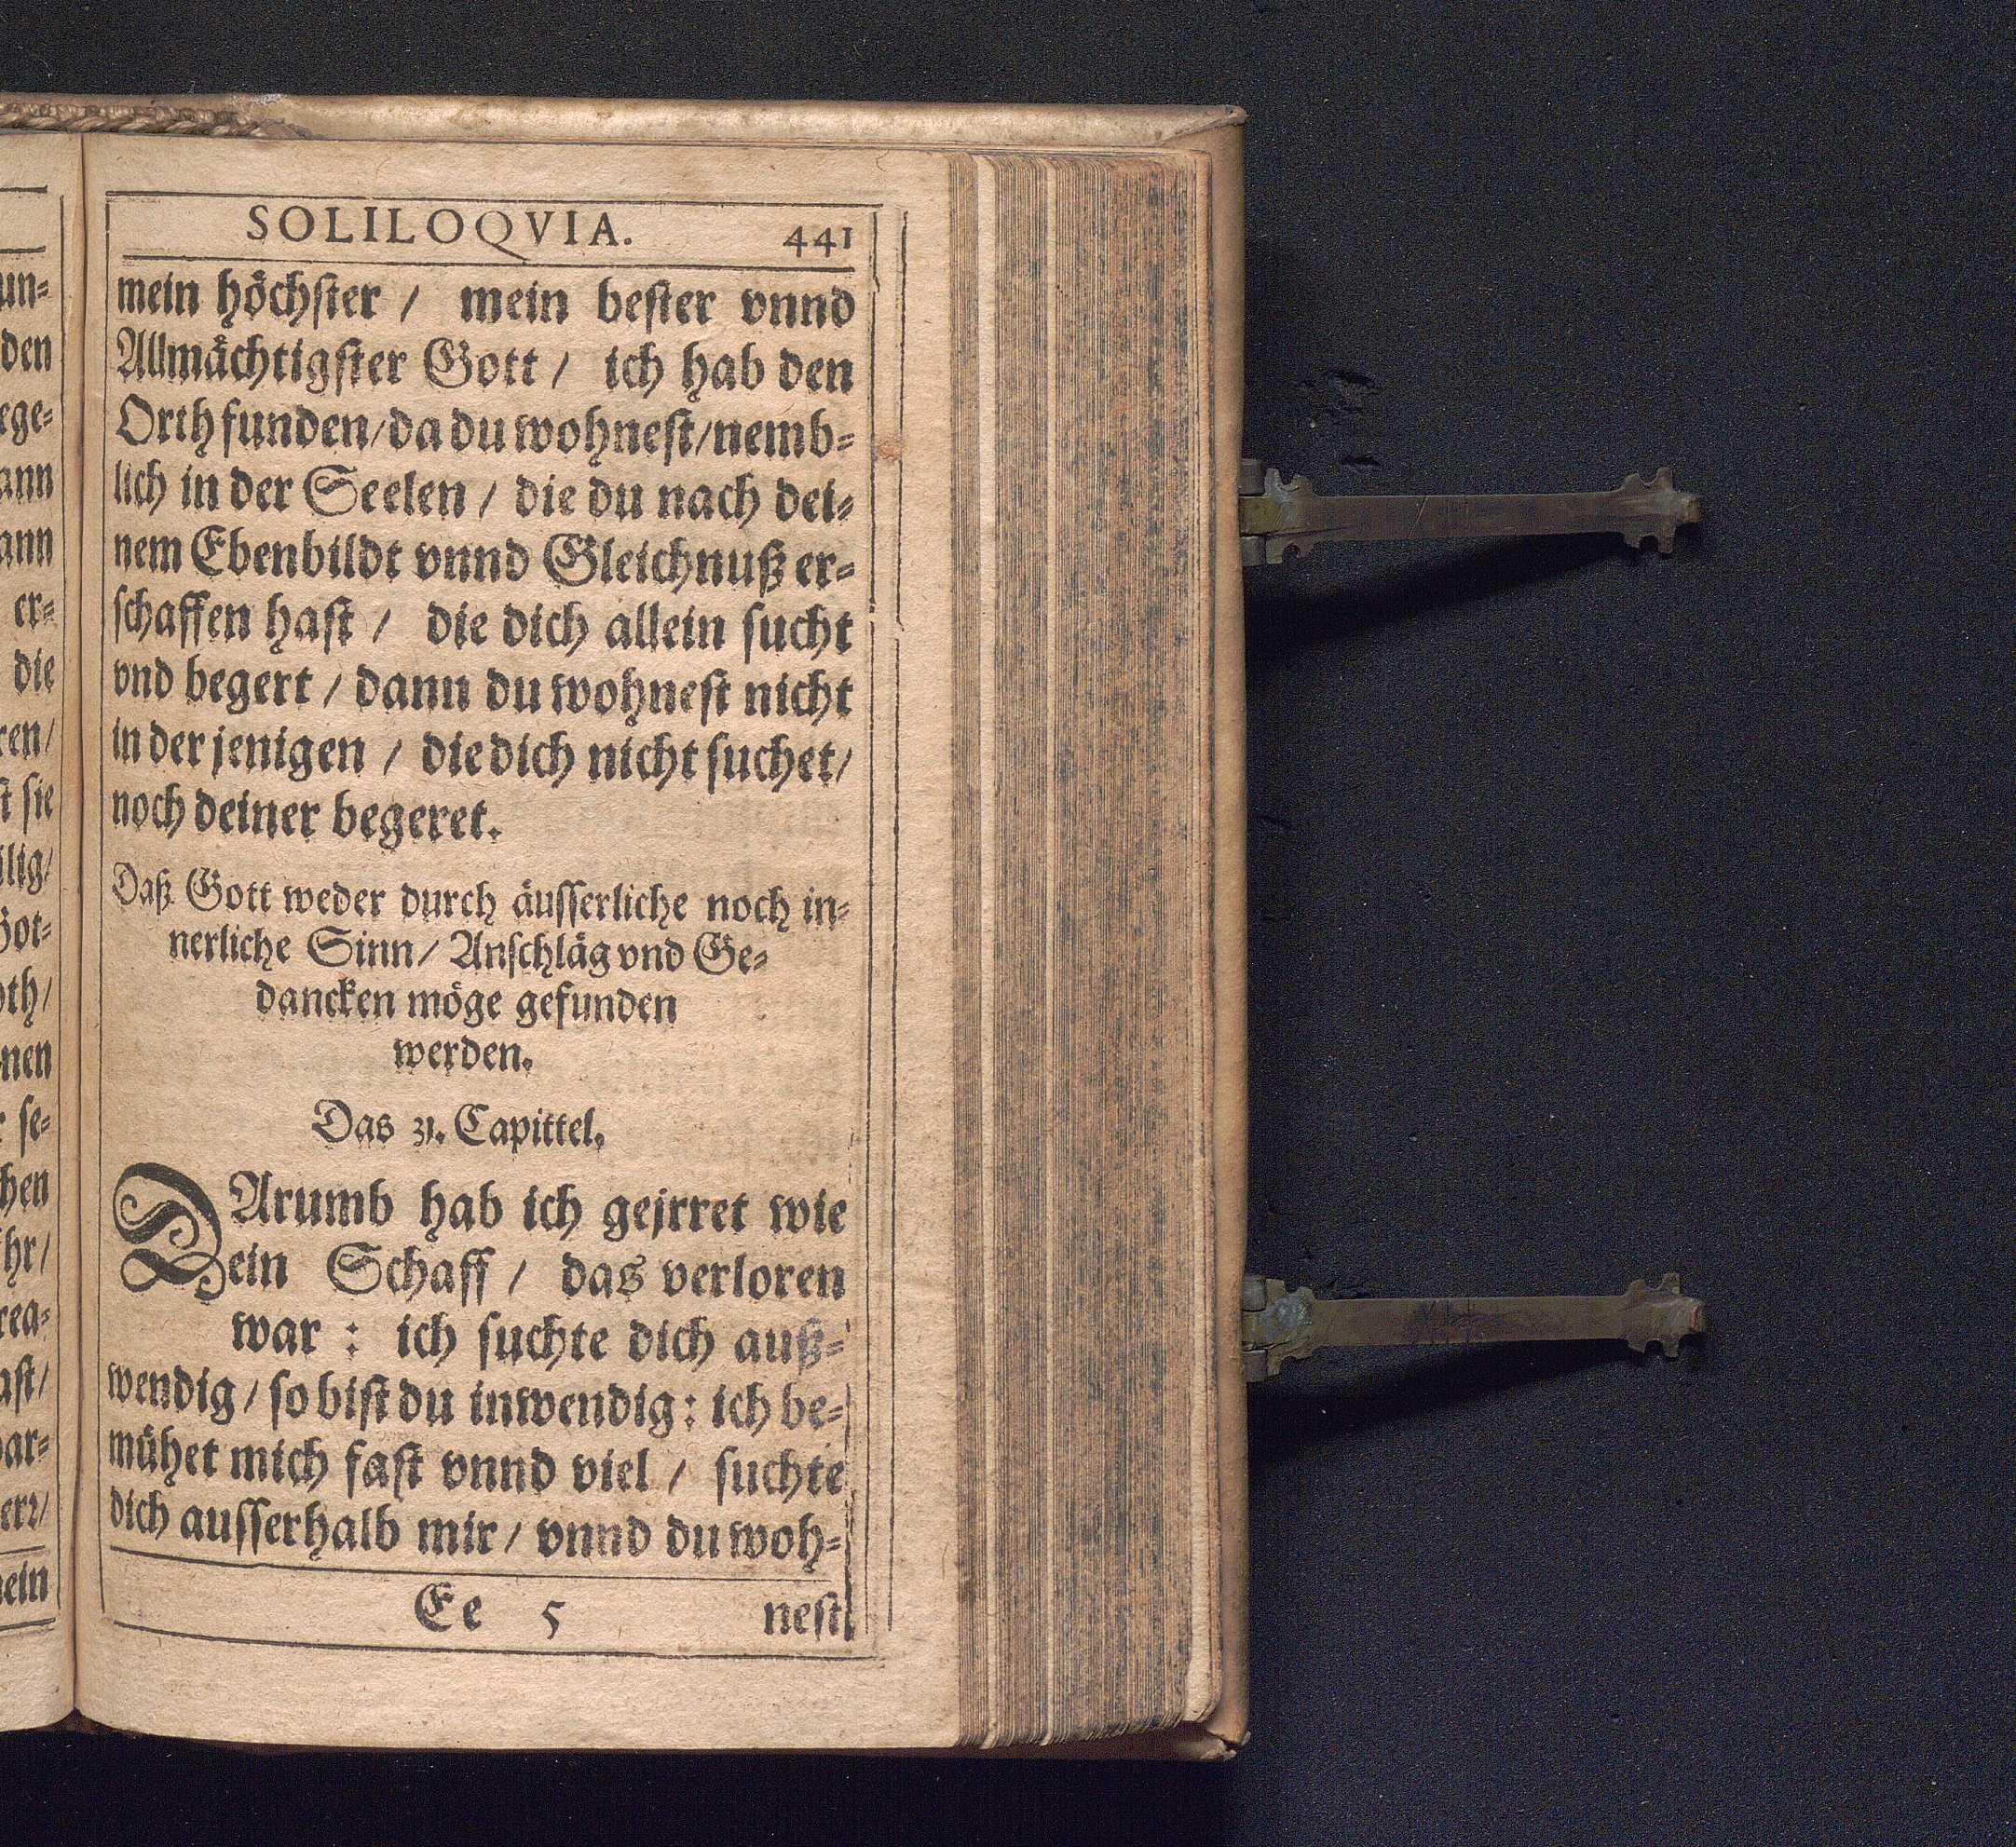 SOLILOQVIA. 441
mein höchster / mein bester vnnd
Allmächtigster Gott / ich hab den
Orth funden/da du wohnest/nemb-
lich in der Seelen / die du nach dei-
nem Ebenbildt vnnd Gleichnuß er-
schaffen hast / die dich allein sucht
vnd begert / dann du wohnest nicht
in der jenigen / die dich nicht suchet/
noch deiner begeret.
Daß Gott weder durch äusserliche noch in-
nerliche Sinn/ Anschläg vnd Ge-
dancken möge gefunden
werden.
Das 31. Capittel.
DArumb hab ich gejrret wie
ein Schaff / das verloren
war : ich suchte dich auß-
wendig / so bist du inwendig: ich be-
mühet mich fast vnnd viel / suchte
dich ausserhalb mir / vnnd du woh-
Ee 5 nest